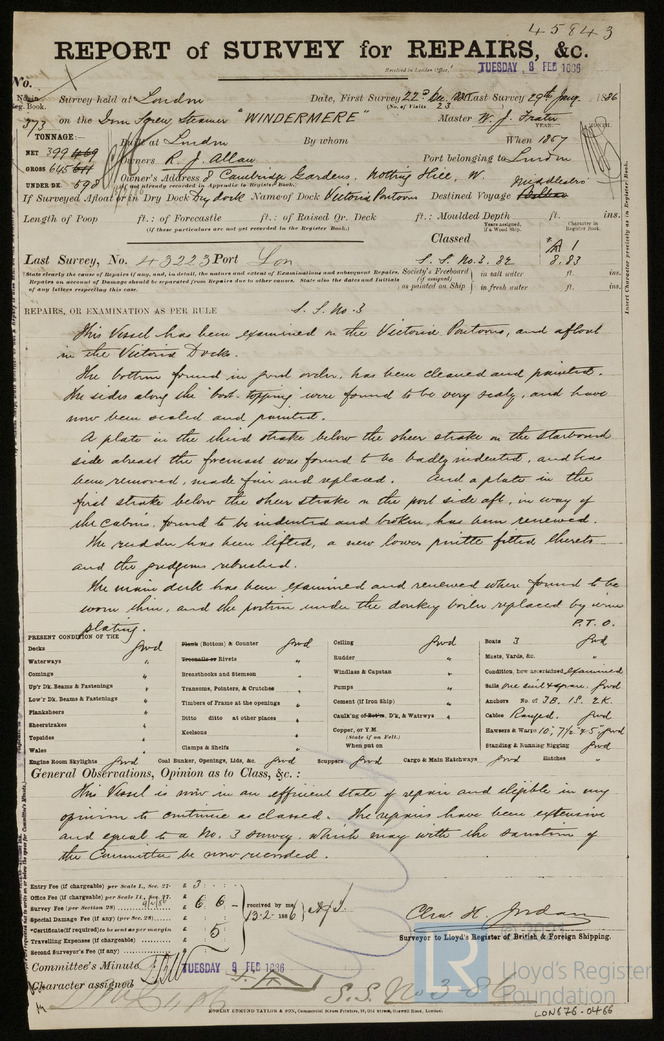 45843
REPORT of SURVEY for REPAIRS, &c.
Received in London Office, TUESDAY 9 FEB 1886
No.
No. in Reg. Book. Survey held at London Date, First Survey 22nd Dec. Last Survey 29th Jany. 1886
(No. of Visits 23)
373 on the Iron Screw Steamer "WINDERMERE" Master W. J. Frater
TONNAGE: YEAR. MONTH.
NET 399 Built at London By whom When 1867
GROSS 645 Owners R. J. Allan Port belonging to London
UNDER DK. 598 Owner's Address 8 Cambridge Gardens, Notting Hill, W.
(if not already recorded in Appendix to Register Book.) Middlesbro
If Surveyed Afloat or in Dry Dock Dry dock Name of Dock Victoria Pontoons Destined Voyage
Length of Poop ft.: of Forecastle ft.: of Raised Qr. Deck ft.: Moulded Depth ft. ins.
(if these particulars are not yet recorded in the Register Book.) Years assigned, if a Wood Ship. Character in Register Book.
Classed A 1
Last Survey, No. 43223 Port Lon S. S. No. 3. 82 8,83
State clearly the cause of Repairs if any, and, in detail, the nature and extent of Examinations and subsequent Repairs. Society's Freeboard in salt water ft. ins.
Repairs on account of Damage should be separated from Repairs due to other causes. State also the dates and Initials (if assigned)
of any letters respecting this case. as painted on Ship in fresh water ft. ins.
Insert Character precisely as in Register Book.
REPAIRS, OR EXAMINATION AS PER RULE S. S. No. 3
This Vessel has been examined on the Victoria Pontoons, and afloat
in the Victoria Docks.
The bottom found in good order, has been cleaned and painted.
The sides along the 'boot-topping' were found to be very scaly, and have
now been scaled and painted.
A plate in the third strake below the sheer strake on the starboard
side abreast the foremast was found to be badly indented, and has
been removed, made fair and replaced. And a plate in the
first strake below the sheer strake on the port side aft, in way of
the cabins, found to be indented and broken, has been renewed.
The rudder has been lifted, a new lower pintle fitted thereto
and the gudgeons rebushed.
The main deck has been examined and renewed where found to be
worn thin, and the portion under the donkey boiler replaced by iron
plating. P.T.O.
PRESENT CONDITION OF THE
Decks good Plank (Bottom) & Counter good Ceiling good Boats 3 good
Waterways " Treenails or Rivets " Rudder " Masts, Yards, &c. "
Comings " Breasthooks and Stemson " Windlass & Capstan " Condition, how ascertained examined
Up'r Dk. Beams & Fastenings " Transoms, Pointers, & Crutches " Pumps " Sails one suit & spare. good
Low'r Dk. Beams & Fastenings " Timbers of Frame at the openings " Cement (if Iron Ship) " Anchors No. of 3B. 1S. 2K.
Planksheers " Ditto ditto at other places " Caulk'ng of Botm, D'k, & Watrwys " Cables Ranged. good
Sheerstrakes " Keelsons " Copper, or Y.M. Hawsers & Warps 10", 7½" & 5" good
Topsides " Clamps & Shelfs " (State if on Felt.) Standing & Running Rigging good
Wales " When put on
Engine Room Skylights good Coal Bunker, Openings, Lids, &c. good Scuppers good Cargo & Main Hatchways good Hatches "
General Observations, Opinion as to Class, &c. :
This Vessel is now in an efficient state of repair and eligible in my
opinion to continue as classed. The repairs have been extensive
and equal to a No. 3 survey, which may with the sanction of
the Committee be now recorded.
Entry Fee (if chargeable) per Scale I., Sec. 27. £ 3
Office Fee (if chargeable) per Scale II., Sec. 27. £
Survey Fee (per Section 28) £ 6. 6. -
Special Damage Fee (if any) (per Sec. 28) £
Certificate (if required) to be sent as per margin 5
Travelling Expenses (if chargeable) £
Second Surveyor's Fee (if any) £
received by me 13-2-1886
Chas. H. Jordan
Surveyor to Lloyd's Register of British & Foreign Shipping.
Committee's Minute TUESDAY 9 FEB 1886
Character assigned
S. S. No 3-86
ROBERT EDMUND TAYLOR & SON, Commercial Steam Printers, 19, Old Street, Goswell Road, London.
LR Lloyd's Register
Foundation
LON676-0466